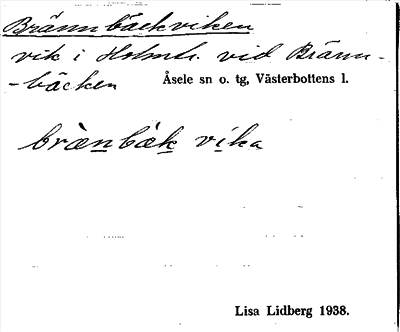 Brännbäckviken
vik i Holmtr. vid Bränn-
-bäcken
Åsele sn o. tg, Västerbottens l.
bræ̀nbæ̀k vika
Lisa Lidberg 1938.